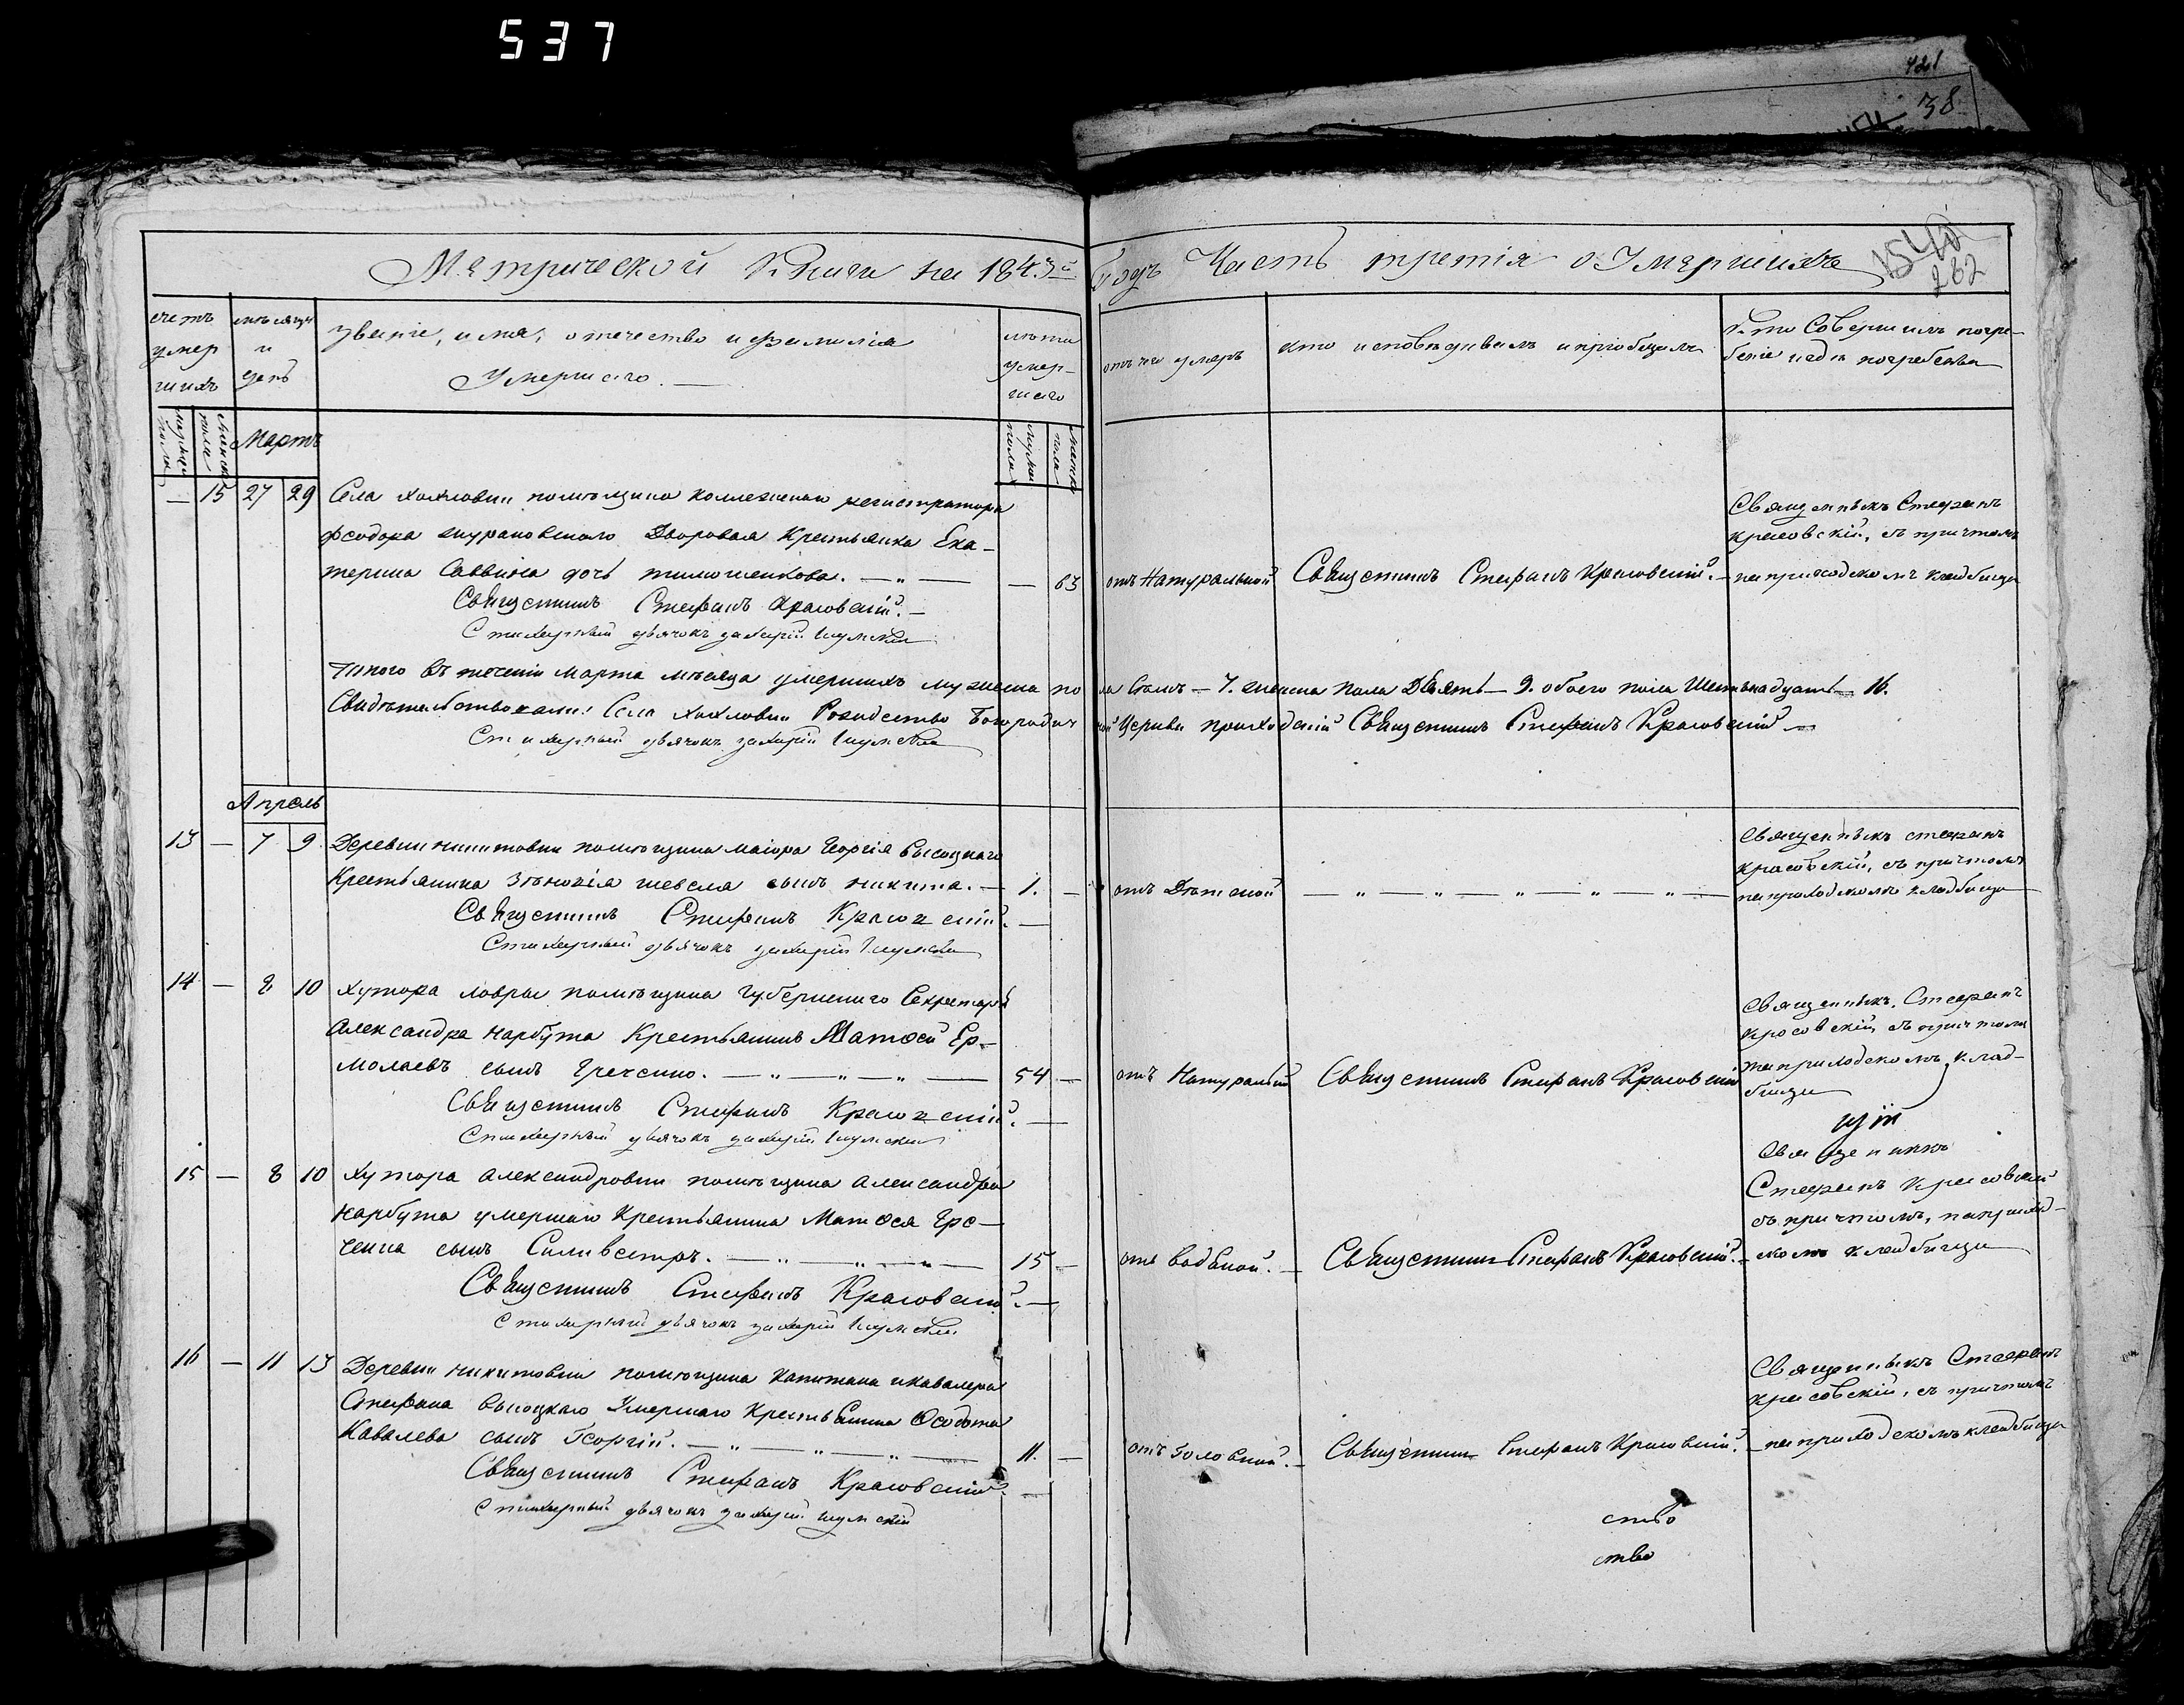 537
421
38
Метрической Книги на 1843й Годъ Часть третія о Умершихъ
262
счетъ умершихъ
мѣсяцъ и день
званіе, имя, отечество и фамилія
Умершаго.
лѣта умершаго
отъ чего умеръ
кто исповѣдивалъ и пріобщалъ
Кто Совершилъ погребеніе и гдѣ погребены
мужеска пола
женска пола
Мартъ
мужеска пола
женска пола
— 15 27 29 Села Хохловки помѣщика коллежскаго регистратора
Феодора Дворовая Крестьянка Ека-
терина Саввина дочь Тимошенкова. — 63 отъ Натуральной Священникъ Стефанъ Красовскій. —
Священникъ Стефанъ
Красовскій, съ причтомъ
на приходскомъ кладбищѣ
Священникъ Стефанъ Красовскій. —
Стихарный дьячокъ Захарій Шумскій
Итого въ теченіи Марта мѣсяца умершихъ мужеска пола Семь — 7. женска пола Девять — 9. обоего пола Шестьнадцать — 16.
Свидѣтельствовали: Села Хохловки Рождество Богородичной Церкви приходскій Священникъ Стефанъ Красовскій —
Стихарный дьячокъ Захарій Шумскій
Апрель
13 — 7 9 Деревни Никитовки помѣщика маіора Георгія Высоцкаго
Крестьянина Зѣновія сынъ Никита. — 1. — отъ Дѣтской — „ — „ — „ — „ — „ —
Священникъ Стефанъ
Красовскій, съ причтомъ
на приходскомъ кладбищѣ
Священникъ Стефанъ Красовскій. —
Стихарный дьячокъ Захарій Шумскій
14 — 8 10 Хутора Лавры помѣщика Губернскаго Секретаря
Александра Нарбута Крестьянинъ Матѳей Ер-
молаевъ сынъ — „ — „ — „ — 54 — отъ Натуральной Священникъ Стефанъ Красовскій
Священникъ Стефанъ
Красовскій, съ причтомъ
на приходскомъ клад-
бищѣ
Священникъ Стефанъ Красовскій. —
Стихарный дьячокъ Захарій Шумскій
15 — 8 10 Хутора Александровки помѣщика Александра
Нарбута умершаго Крестьянина Матѳея
сынъ Силивестръ. — „ — „ — „ — 15 — отъ водяной. — Священникъ Стефанъ Красовскій. —
Священникъ
Стефанъ Красовскій
съ причтомъ, на приход-
скомъ кладбищѣ
Священникъ Стефанъ Красовскій. —
Стихарный дьячокъ Захарій Шумскій
16 — 11 13 Деревни Никитовки помѣщика капитана и кавалера
Стефана Высоцкаго Умершаго Крестьянина Ѳеодота
Кавалева сынъ Георгій. — „ — „ — „ — 11. — отъ Головной. — Священникъ Стефанъ Красовскій. —
Священникъ Стефанъ
Красовскій, съ причтомъ
на приходскомъ кладбищѣ
Священникъ Стефанъ Красовскій. —
Стихарный дьячокъ Захарій Шумскій
ство
ство